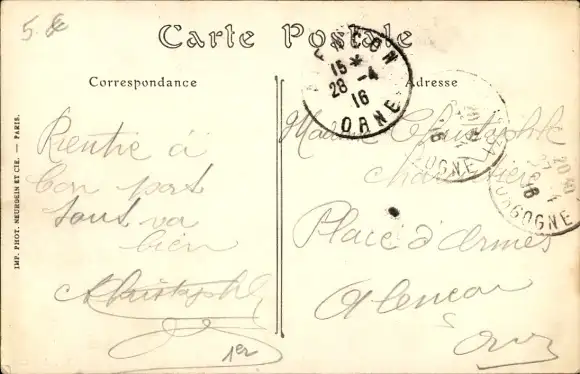 5.
Carte Postale
Correspondance
Adresse
ALENCON
15 *
28 -4
16
ORNE
Rentré à
bon port
tout va
bien
Christophe
1er
Madame Christophe
Place d'Armes
Alencon
Orne
20 30
16
OGNE
20 30
16
OGNE
IMP. PHOT. NEURDEIN ET CIE. — PARIS.